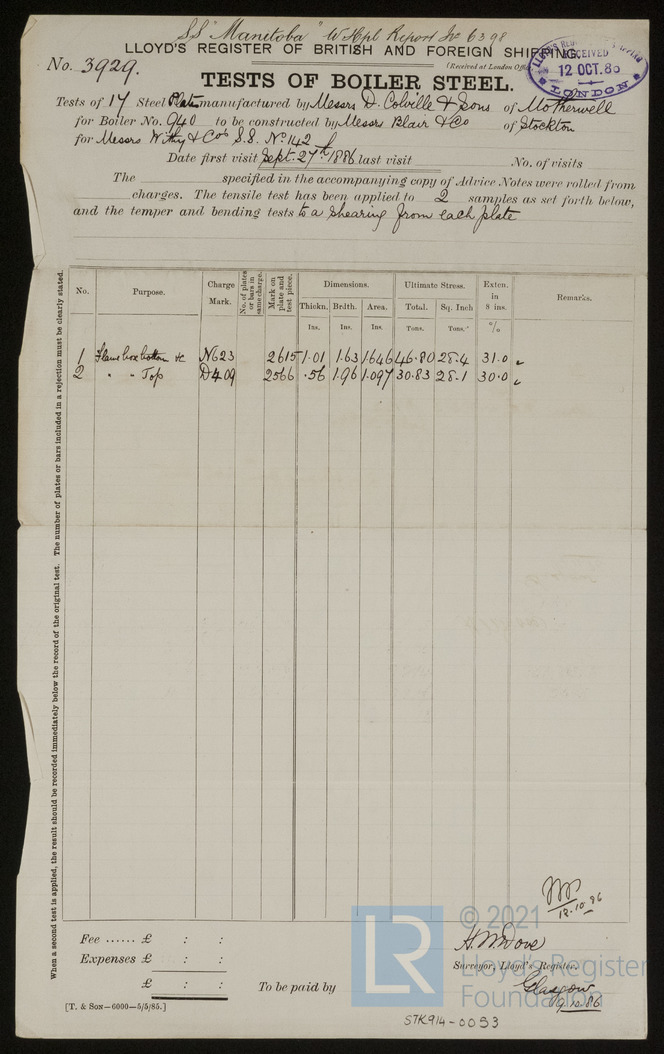 S.S "Manitoba" W Hpl Report No 6398
LLOYD'S REGISTER OF BRITISH AND FOREIGN SHIPPING.
No. 3929.
(Received at London Office
LLOYD'S REG
RECEIVED
12 OCT. 86
LONDON
TESTS OF BOILER STEEL.
Tests of 17 Steel Plates manufactured by Messrs D. Colville & Sons of Motherwell
for Boiler No. 940 to be constructed by Messrs Blair & Co of Stockton
for Messrs Withy & Co's S.S. No. 142
Date first visit Sept. 27th 1886 last visit No. of visits
The specified in the accompanying copy of Advice Notes were rolled from
charges. The tensile test has been applied to 2 samples as set forth below,
and the temper and bending tests to a shearing from each plate
No. Purpose. Charge Mark. No. of plates or bars in same charge. Mark on plate and test piece. Dimensions. Ultimate Stress. Exten. in 8 ins. Remarks.
Thickn. Brdth. Area. Total. Sq. Inch
Ins. Ins. Ins. Tons. Tons. %
1 Flame box bottom &c N623 2615 1.01 1.63 1.646 46.80 28.4 31.0 "
2 " " Top D409 2566 .56 1.96 1.097 30.83 28.1 30.0 "
When a second test is applied, the result should be recorded immediately below the record of the original test. The number of plates or bars included in a rejection must be clearly stated.
12.10.86
Fee ...... £ : :
Expenses £ : :
£ : :
To be paid by
H. W. Dove
Surveyor, Lloyd's Register.
Glasgow
9.10.86
[T. & Son—6000—5/5/85.]
LR
© 2021
Lloyd's Register
Foundation
STK914-0053